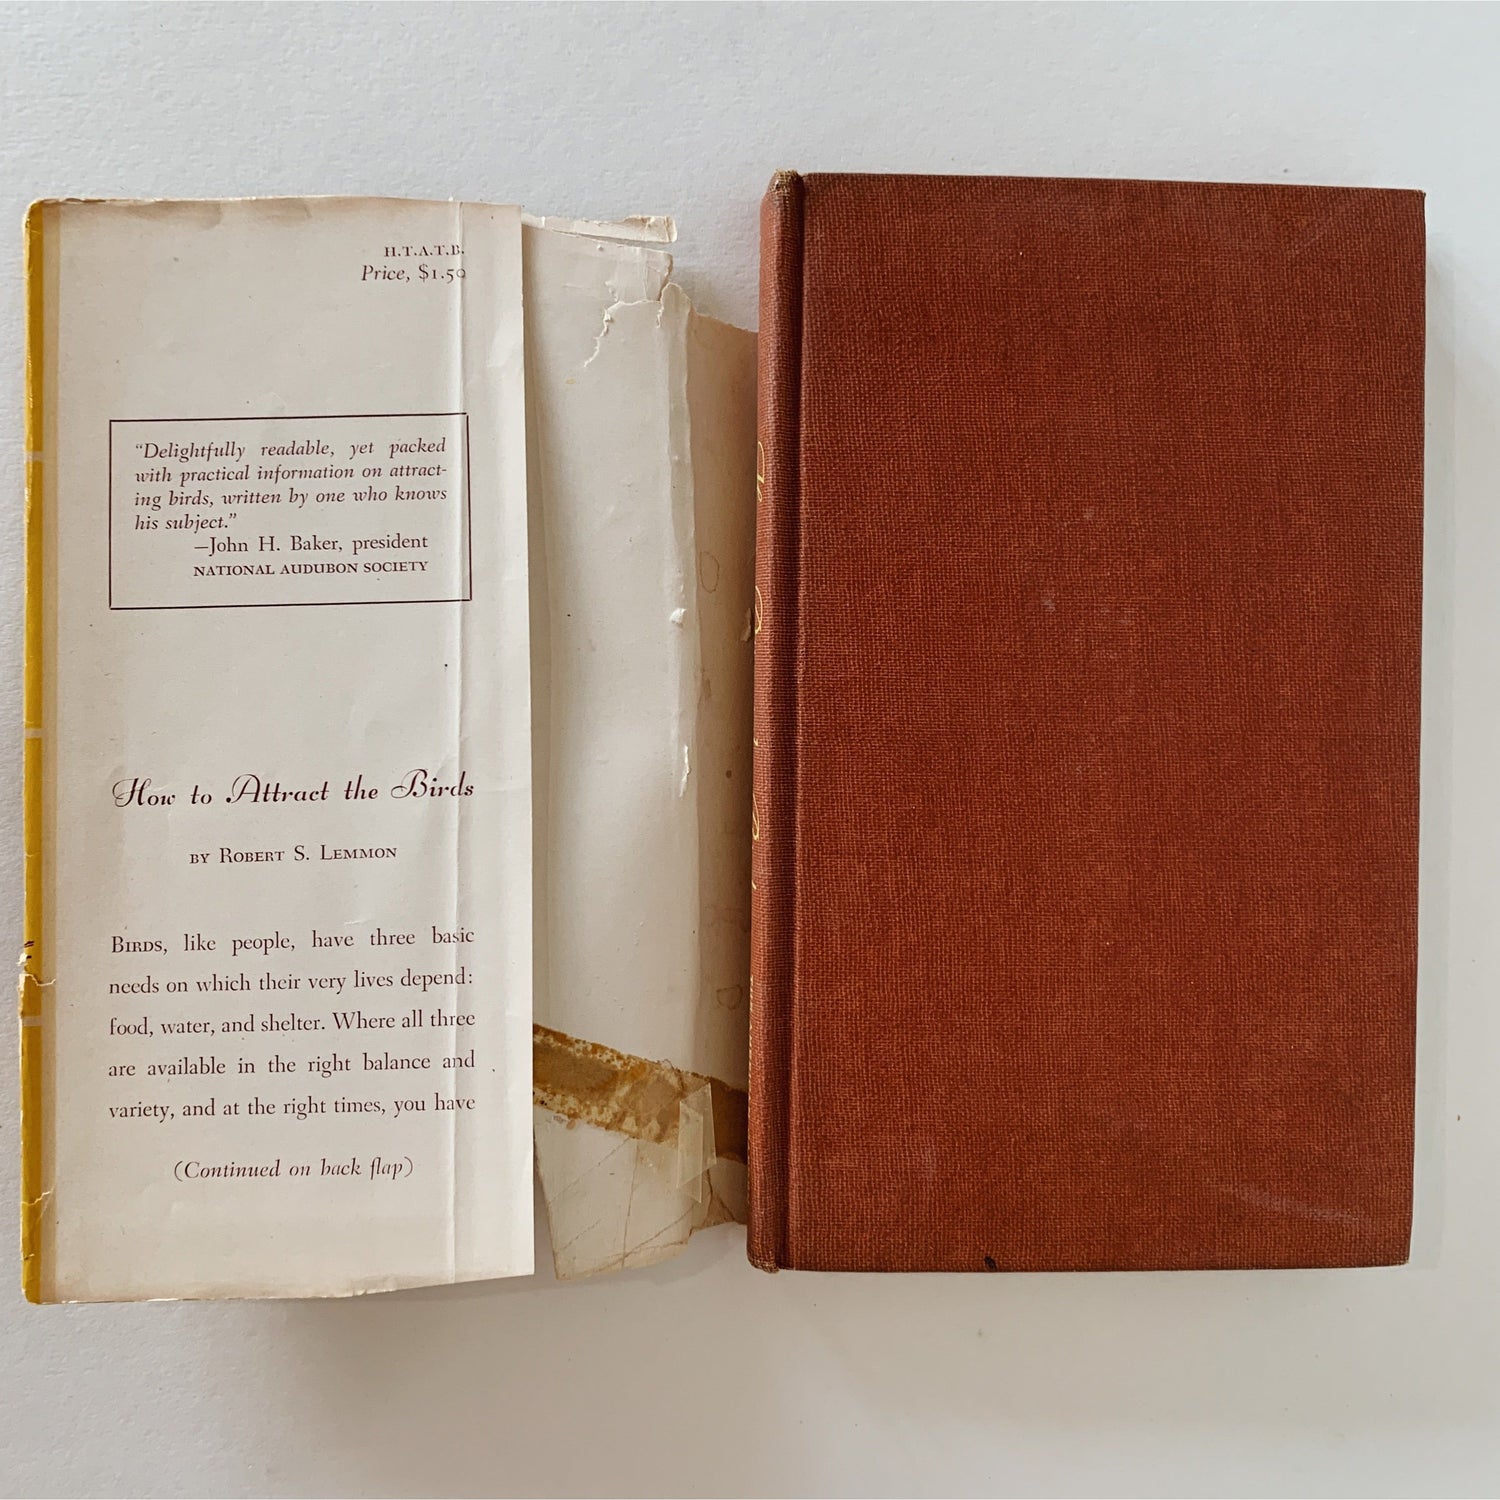 H.T.A.T.B.
Price, $1.50
“Delightfully readable, yet packed
with practical information on attract-
ing birds, written by one who knows
his subject.”
—John H. Baker, president
NATIONAL AUDUBON SOCIETY
How to Attract the Birds
BY ROBERT S. LEMMON
BIRDS, like people, have three basic
needs on which their very lives depend:
food, water, and shelter. Where all three
are available in the right balance and
variety, and at the right times, you have
(Continued on back flap)